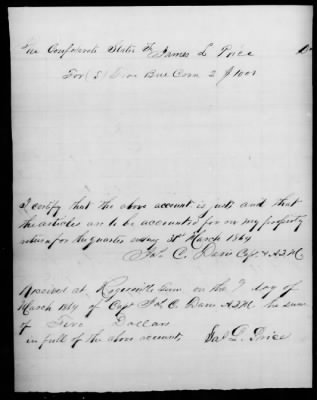 The Confederate States To James L Price Dr
For (5) Five Bus Corn 2 $1000
I certify that the above account is just and that
the articles are to be accounted for on my property
return for the quarter ending 31st March 1864
Jno. C. Dam Capt & AQM
Received at Rogersville Tenn on the 9 day of
March 1864 of Capt Jno C Dam AQM the sum
of Five Dollars
in full of the above account
Jas L. Price